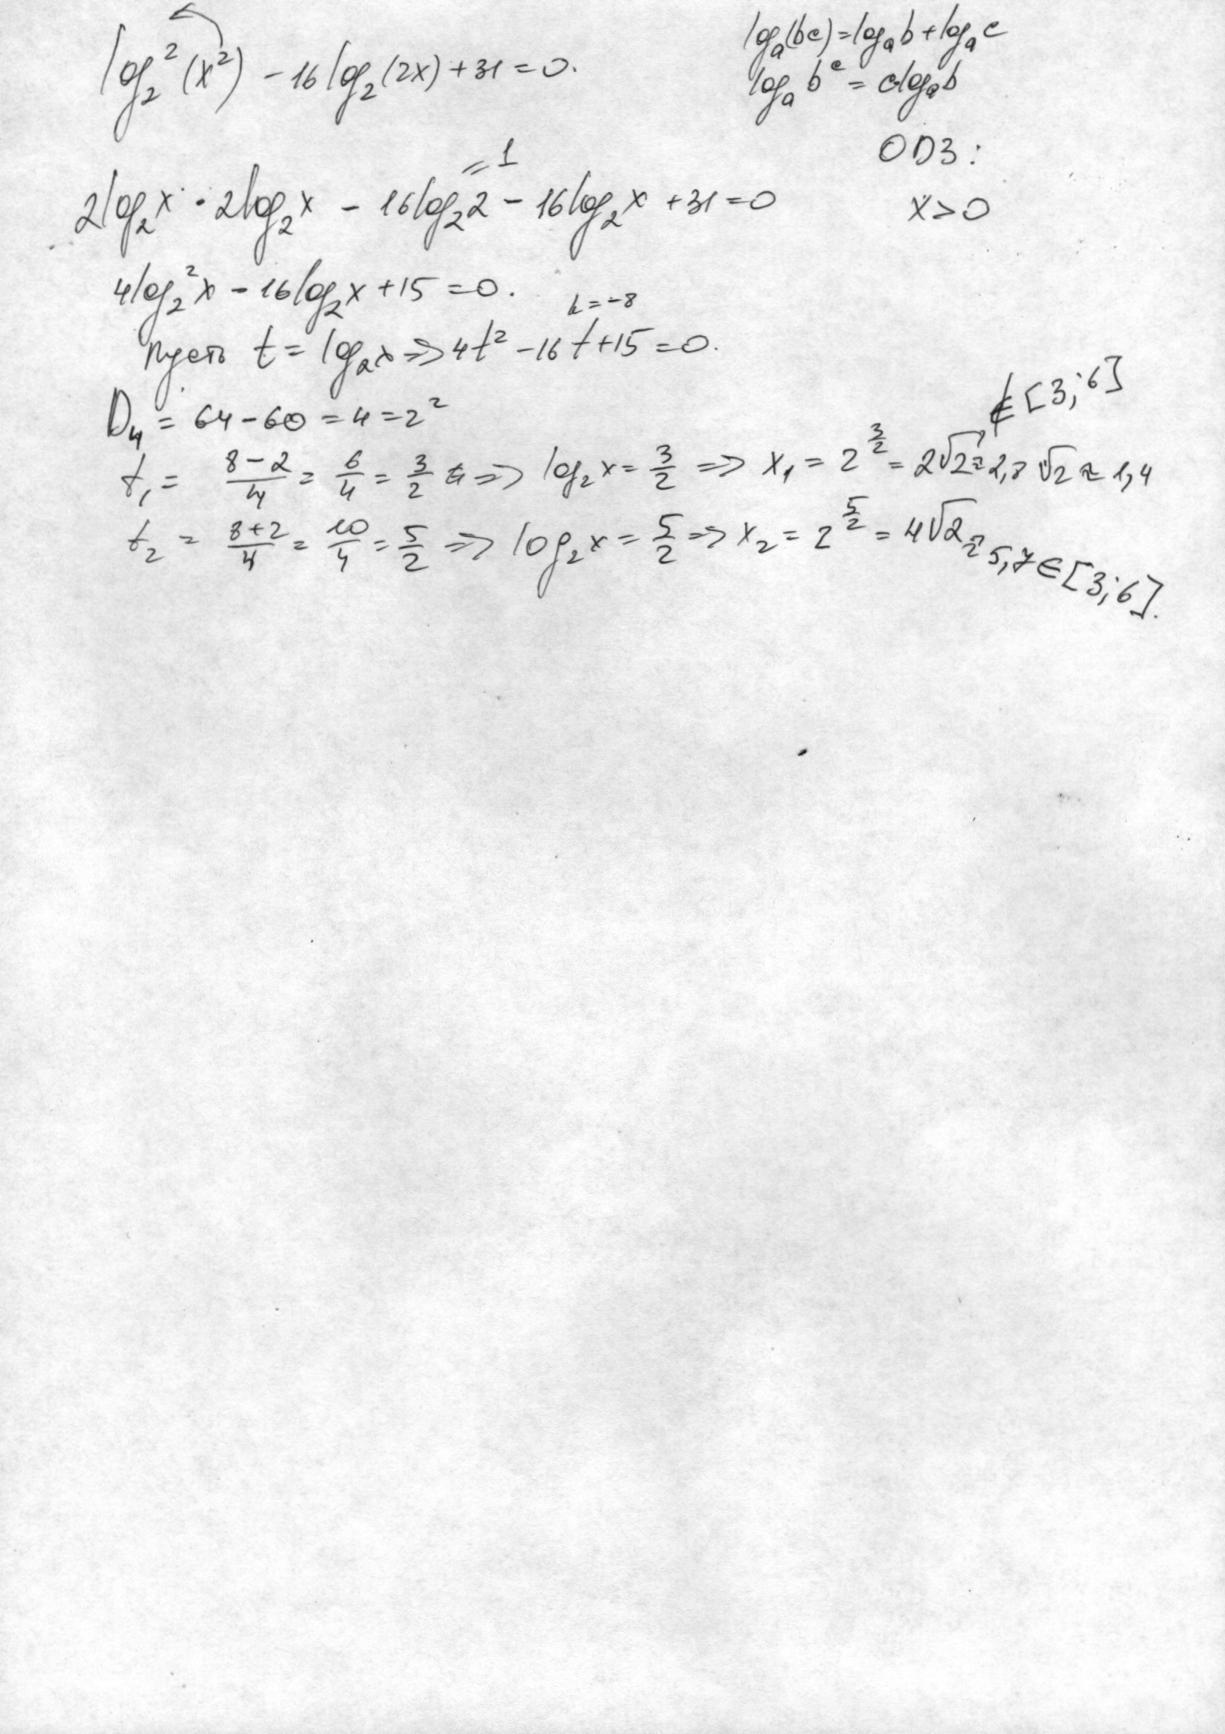 log₂²(x²) - 16 log₂(2x) + 31 = 0.
logₐ(bc) = logₐb + logₐc
logₐ bᶜ = c logₐb
ОДЗ:
x > 0
= 1
2log₂x · 2log₂x - 16log₂2 - 16log₂x + 31 = 0
4log₂²x - 16log₂x + 15 = 0.
k = -8
Пусть t = log₂x => 4t² - 16t + 15 = 0.
D₄ = 64 - 60 = 4 = 2²
t₁ = (8-2)/4 = 6/4 = 3/2 => log₂x = 3/2 => x₁ = 2^(3/2) = 2√2 ≈ 2,8 ∉ [3;6]
√2 ≈ 1,4
t₂ = (8+2)/4 = 10/4 = 5/2 => log₂x = 5/2 => x₂ = 2^(5/2) = 4√2 ≈ 5,7 ∈ [3;6].